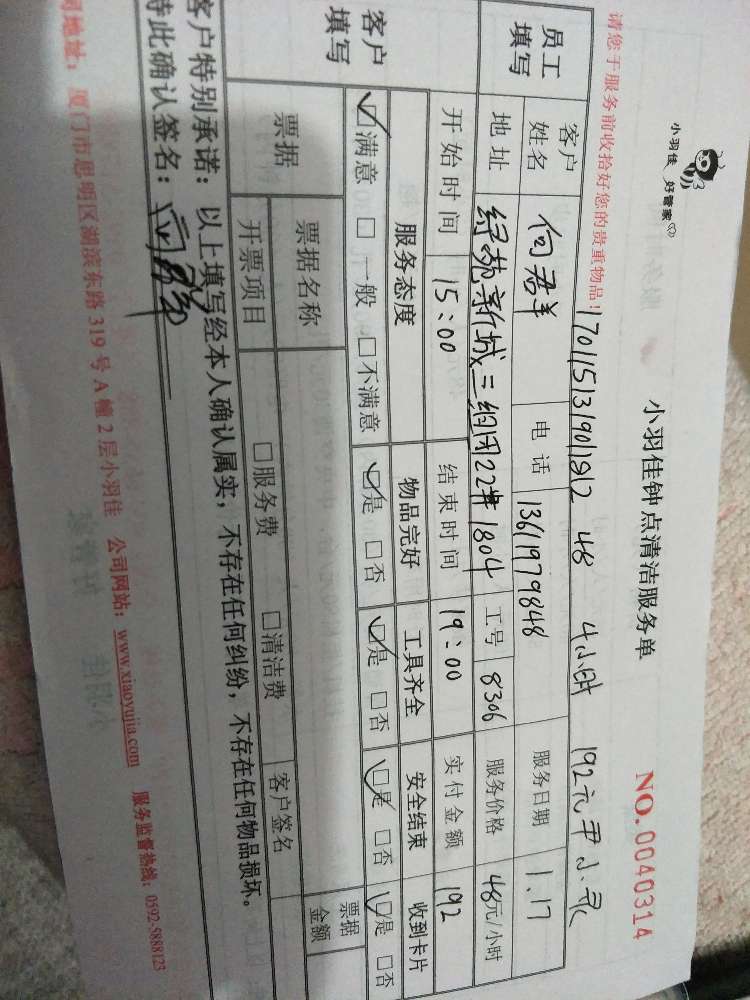 小羽佳 好管家
小羽佳钟点清洁服务单
NO. 0040314
请您于服务前收拾好您的贵重物品！
170115131901912 48 4小时 192元
员工填写 客户姓名 向君羊 电话 13611979848 服务日期 1.17
地址 新城三组团22#1804 工号 8306 服务价格 48元/小时
开始时间 15:00 结束时间 19:00 实付金额 192
客户填写 服务态度 物品完好 工具齐全 安全结束 收到卡片
☑满意 □一般 □不满意 ☑是 □否 ☑是 □否 ☑是 □否 ☑是 □否
票据 票据名称 客户签名 票据金额
开票项目 □服务费 □清洁费
客户特别承诺：以上填写经本人确认属实，不存在任何纠纷，不存在任何物品损坏。
特此确认签名：
司地址：厦门市思明区湖滨东路319号A幢2层小羽佳 公司网站：www.xiaoyujia.com 服务监督热线：0592-5888123